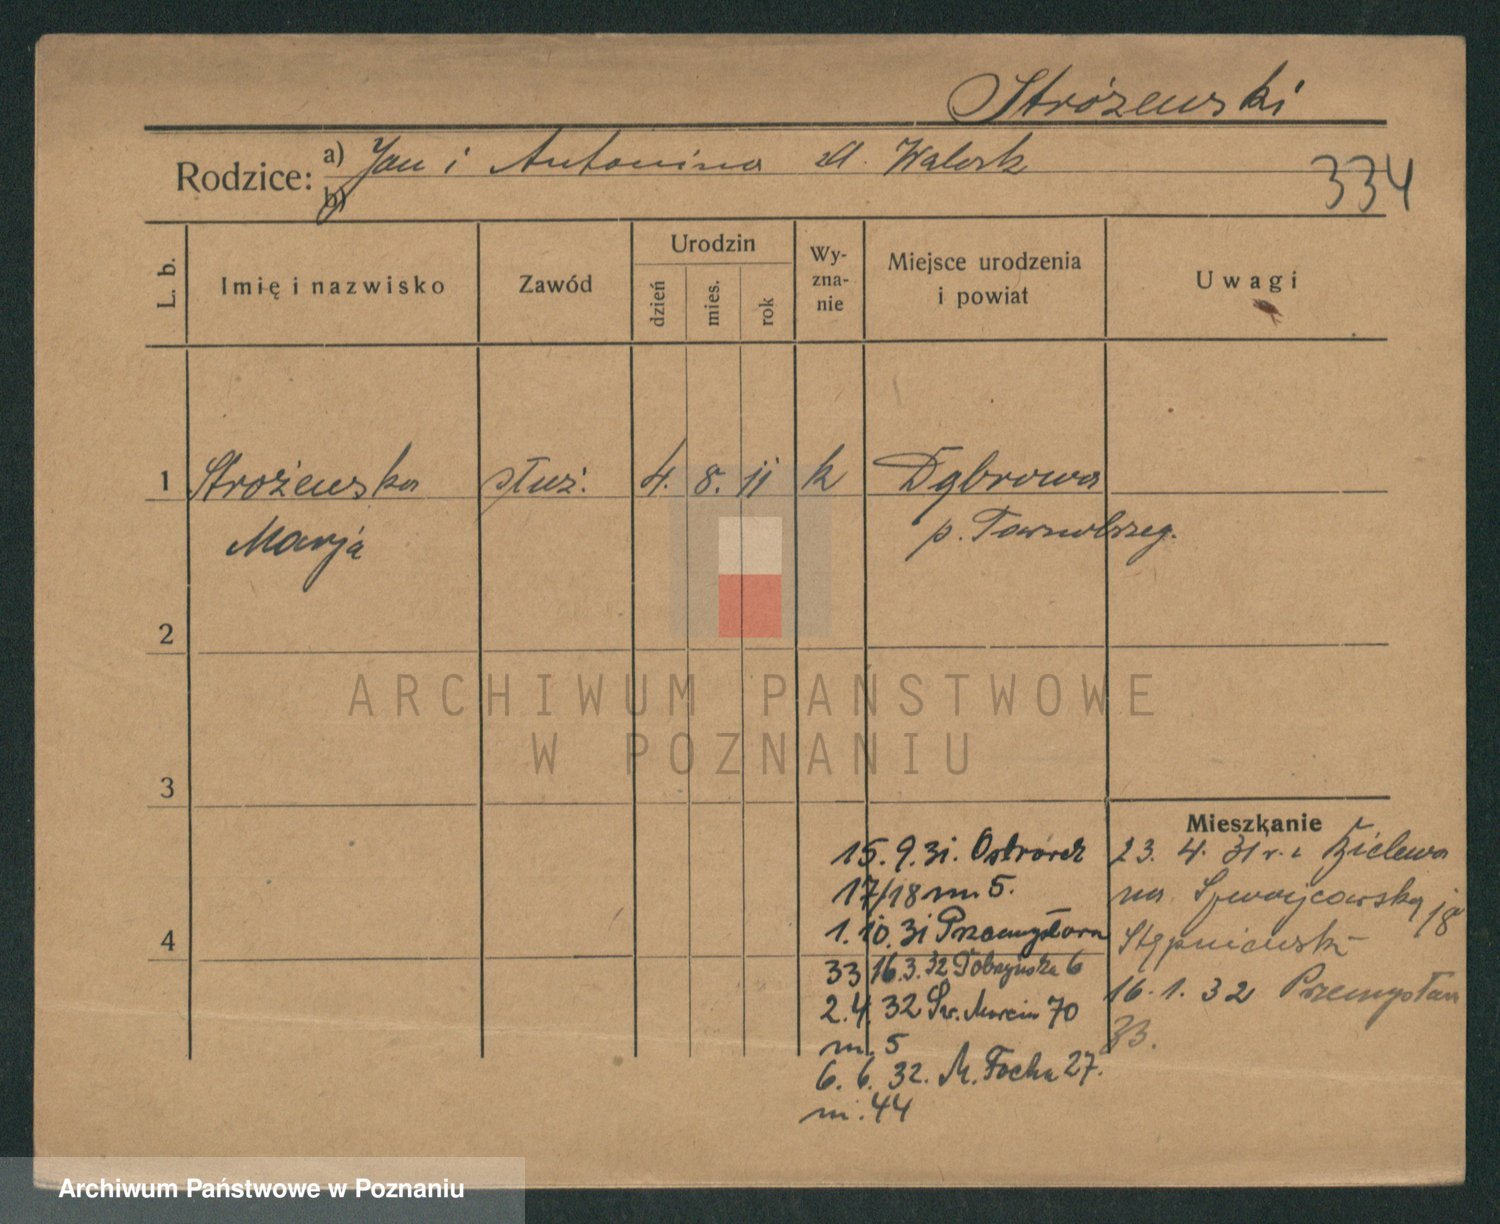 Stróżewski
Rodzice: a) Jan i Antonina zd. Walork
b)
334
L. b.
Imię i nazwisko
Zawód
Urodzin
dzień
mies.
rok
Wy-
zna-
nie
Miejsce urodzenia
i powiat
Uwagi
1 Strożewska służ. 4. 8. 11 k Dąbrowa
Marja p. Tarnobrzeg.
2
3
4
Mieszkanie
23. 4. 31 r. z
na Szwajcarską 18
Stępniewski
16. 1. 32 Przemysłowa
33.
15. 9. 31. Ostroróg
17/18 m 5.
1. 10. 31 Przemysłowa
33 16. 3. 32 6
2. 4. 32 Św. Marcin 70
m. 5
6. 6. 32. M. Focha 27.
m. 44
ARCHIWUM PAŃSTWOWE
W POZNANIU
Archiwum Państwowe w Poznaniu